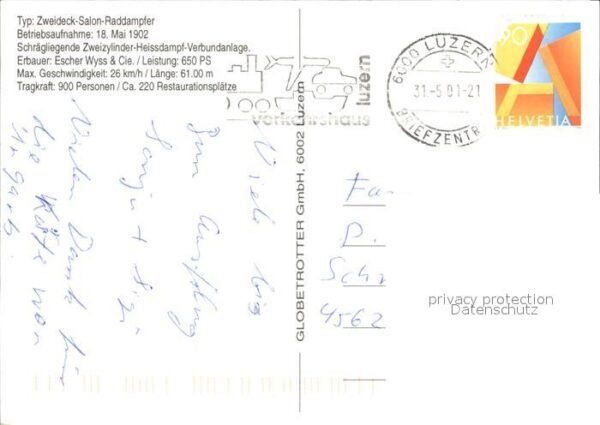 Typ: Zweideck-Salon-Raddampfer
Betriebsaufnahme: 18. Mai 1902
Schrägliegende Zweizylinder-Heissdampf-Verbundanlage.
Erbauer: Escher Wyss & Cie. / Leistung: 650 PS
Max. Geschwindigkeit: 26 km/h / Länge: 61.00 m
Tragkraft: 900 Personen / Ca. 220 Restaurationsplätze
verkehrshaus
luzern
6000 LUZERN
31.-5.01-21
BRIEFZENTR
90
HELVETIA
GLOBETROTTER GmbH, 6002 Luzern
Viele
zum Ausflug
Vielen Dank für
die Karte von
Fa
D.
Sch
4562
privacy protection
Datenschutz